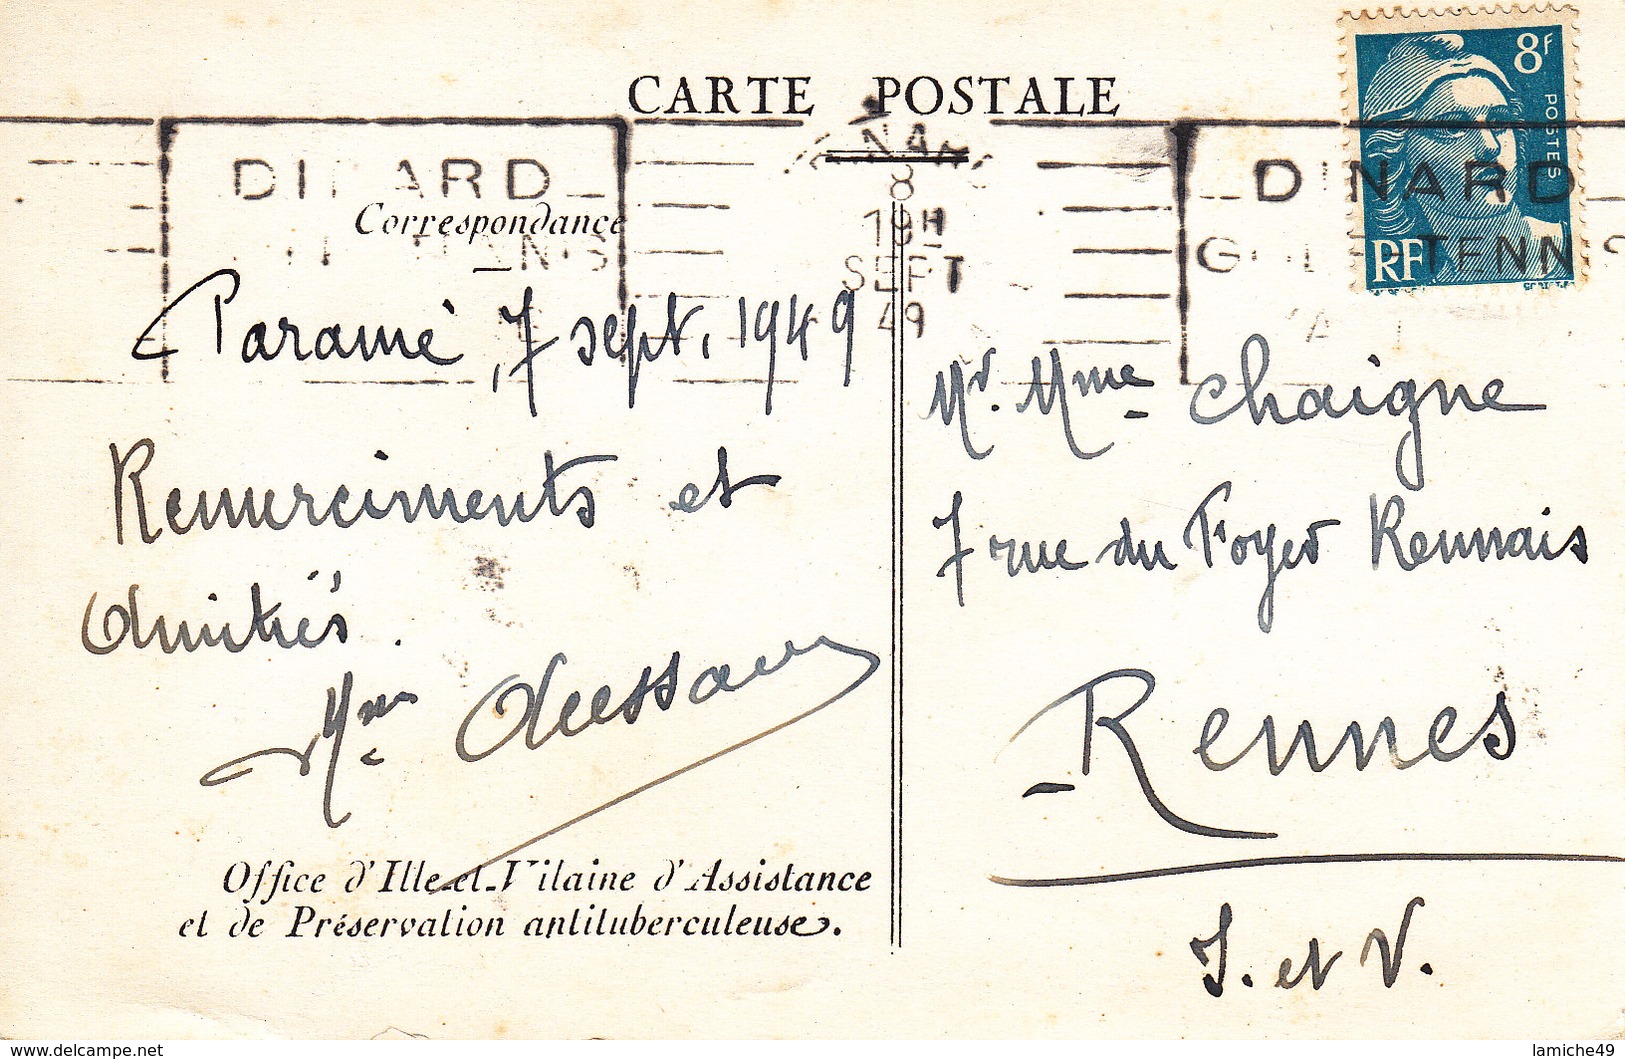 CARTE POSTALE
8F
POSTES
RF
DINARD
8
19H
SEPT
49
DINARD
Correspondance
Paramé, 7 sept. 1949
Remerciments et
Amitiés.
Mme
Mr. Mme Chaigne
7 rue du Foyer Rennais
Rennes
I. et V.
Office d'Ille-et-Vilaine d'Assistance
et de Préservation antituberculeuse.
www.delcampe.net
lamiche49